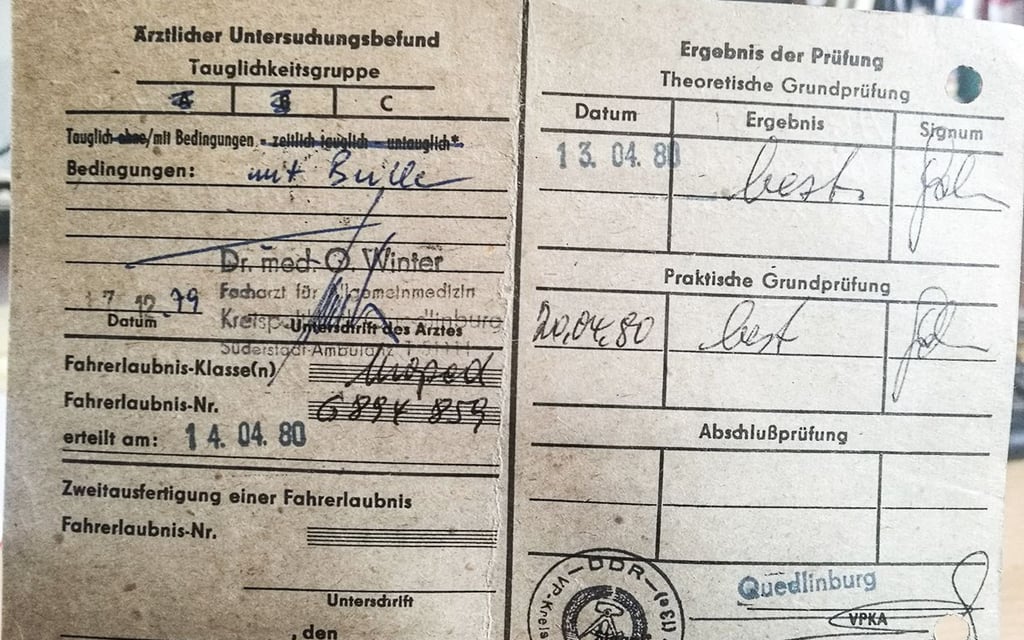 Ärztlicher Untersuchungsbefund
Tauglichkeitsgruppe
A B C
Tauglich ohne/mit Bedingungen - zeitlich tauglich - untauglich*.
Bedingungen: mit Brille
Dr. med. O. Winter
Facharzt für Allgemeinmedizin
17 12 79
Datum
Unterschrift des Arztes
Süderstadt-Ambulanz
Fahrerlaubnis-Klasse(n) Moped
Fahrerlaubnis-Nr. G 894 859
erteilt am: 14. 04. 80
Zweitausfertigung einer Fahrerlaubnis
Fahrerlaubnis-Nr.
Unterschrift
, den
Ergebnis der Prüfung
Theoretische Grundprüfung
Datum Ergebnis Signum
13. 04. 80 best.
Praktische Grundprüfung
20.04.80 best
Abschlußprüfung
DDR
VP-Kreis
Quedlinburg
VPKA